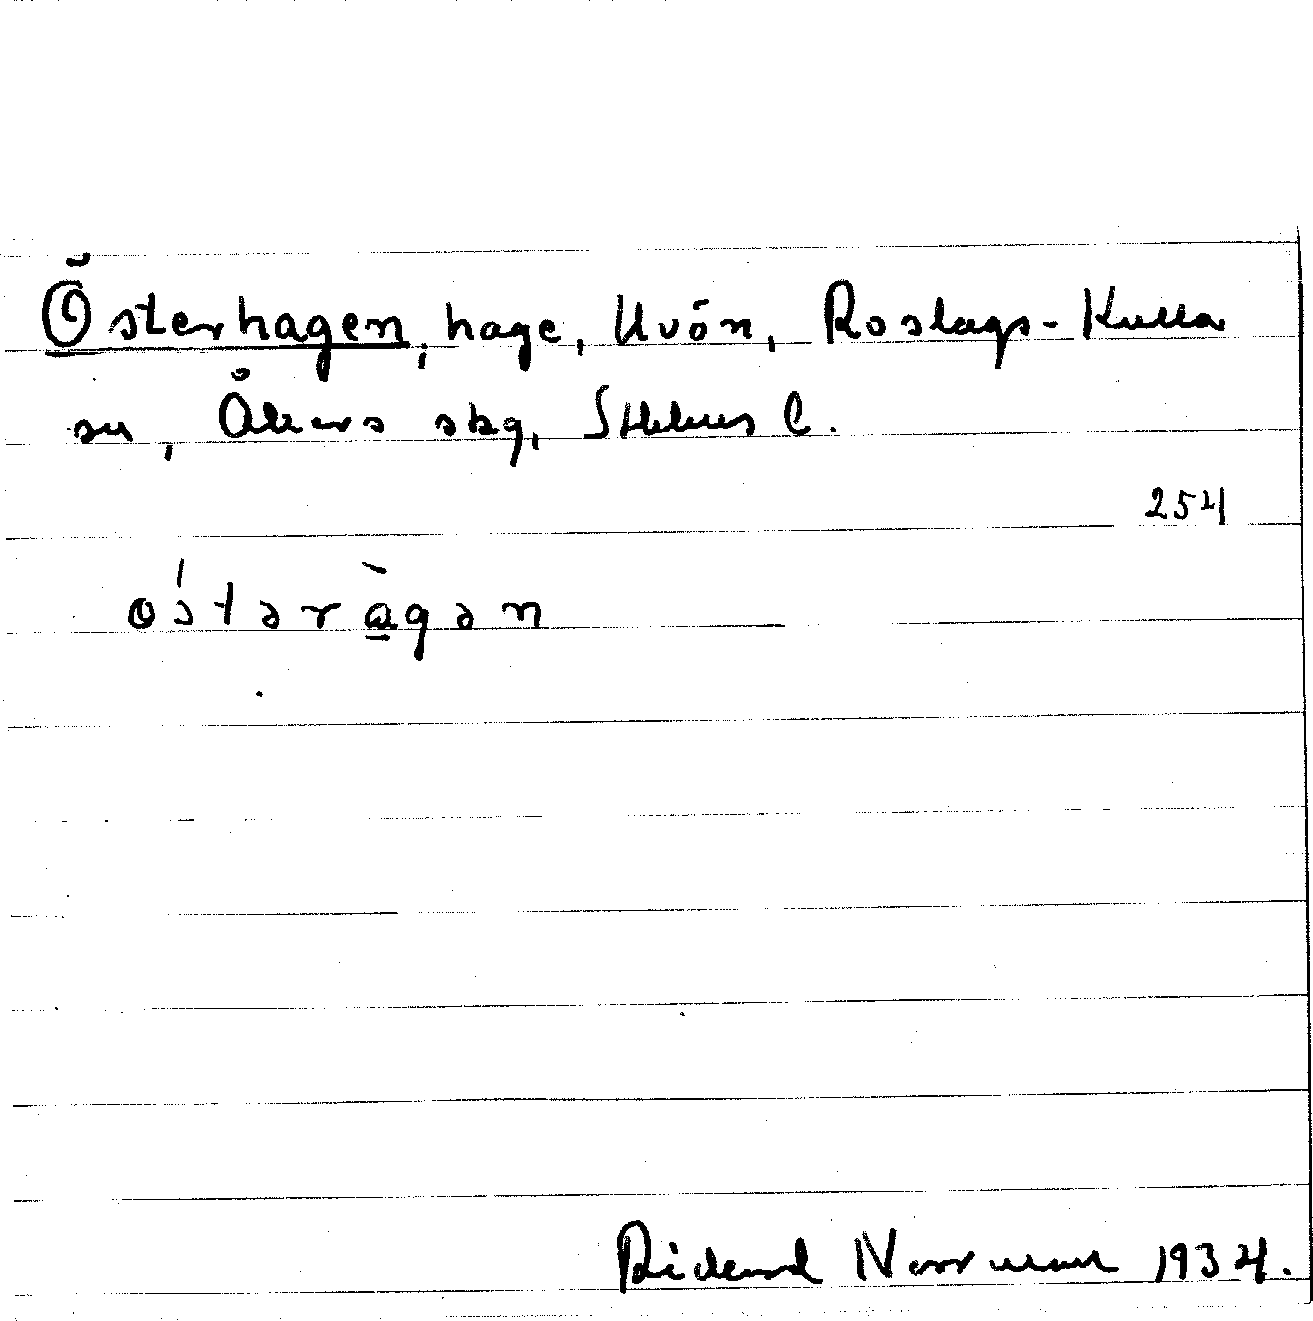 Österhagen, hage, Uvön, Roslags-Kulla
sn, Åkers skg, Sthlms l.
254
Rickard Norrman 1934.